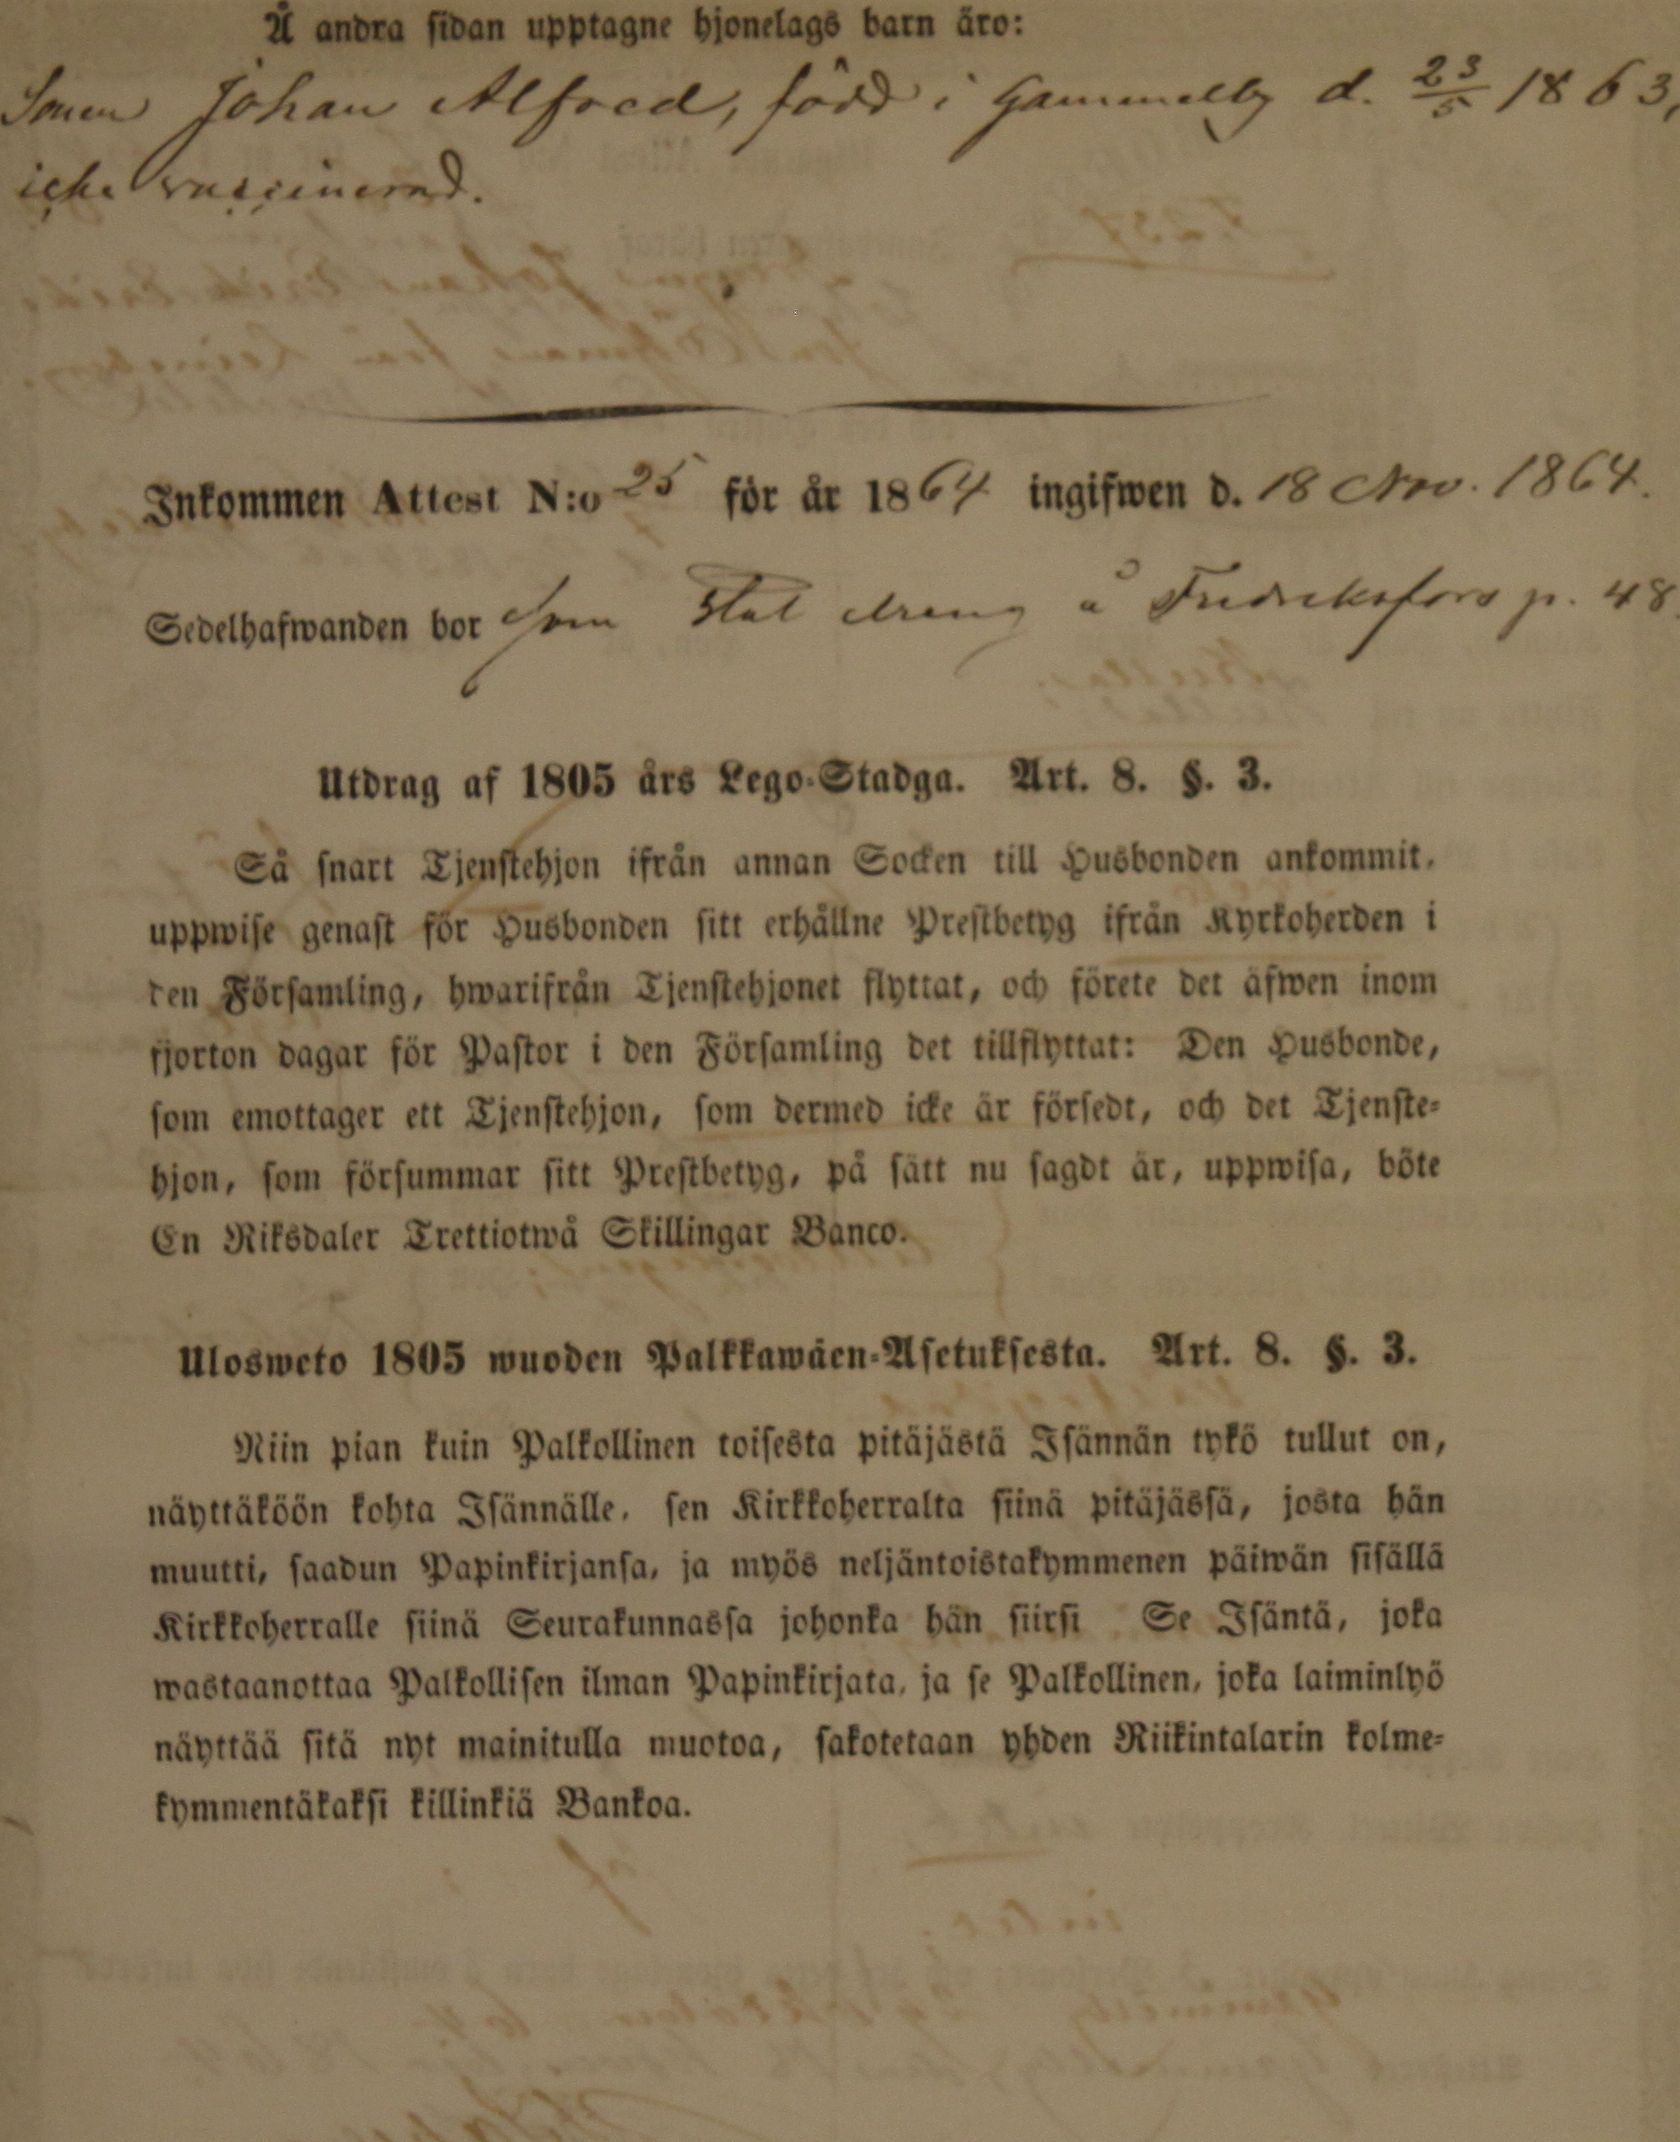 Å andra sidan upptagne hjonelags barn äro:
Sonen Johan Alfred, född i Gammelby d. 23/5 1863,
icke vaccinerad.
Inkommen Attest N:o 25 för år 1864 ingifwen d. 18 Nov. 1864.
Sedelhafwanden bor som Stat dräng å Fredriksfors p. 48.
Utdrag af 1805 års Lego-Stadga. Art. 8. §. 3.
Så snart Tjenstehjon ifrån annan Socken till Husbonden ankommit,
uppwise genast för Husbonden sitt erhållne Prestbetyg ifrån Kyrkoherden i
den Församling, hwarifrån Tjenstehjonet flyttat, och förete det äfwen inom
fjorton dagar för Pastor i den Församling det tillflyttat: Den Husbonde,
som emottager ett Tjenstehjon, som dermed icke är försedt, och det Tjenste-
hjon, som försummar sitt Prestbetyg, på sätt nu sagdt är, uppwisa, böte
En Riksdaler Trettiotwå Skillingar Banco.
Ulosweto 1805 wuoden Palkkawäen-Asetuksesta. Art. 8. §. 3.
Niin pian kuin Palkollinen toisesta pitäjästä Isännän tykö tullut on,
näyttäköön kohta Isännälle, sen Kirkkoherralta siinä pitäjässä, josta hän
muutti, saadun Papinkirjansa, ja myös neljäntoistakymmenen päiwän sisällä
Kirkkoherralle siinä Seurakunnassa johonka hän siirsi Se Isäntä, joka
wastaanottaa Palkollisen ilman Papinkirjata, ja se Palkollinen, joka laiminlyö
näyttää sitä nyt mainitulla muotoa, sakotetaan yhden Riikintalarin kolme-
kymmentäkaksi killinkiä Bankoa.